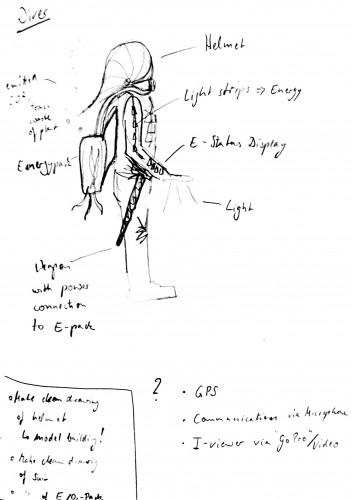 Dives
Helmet
Light strips => Energy
E-Status Display
Light
emitted
waste
of plant
Energypack
Weapon
with power
connection
to E-pack
? • GPS
• Communications via Microphone
• I-viewer via "GoPro"/Video
• Make clean drawing
of helmet
↳ model building!
• Make clean drawing
of suit
of E-Pack